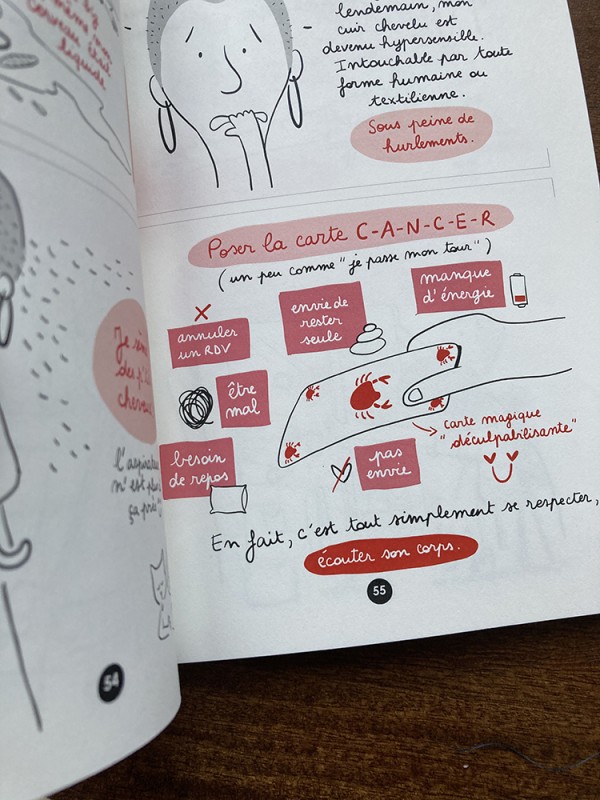 liquide.
Je
du p'
cheveu
l'aspirateur
n'est plus
ça près
54
lendemain, mon
cuir chevelu est
devenu hypersensible.
Intouchable par toute
forme humaine ou
textilienne.
Sous peine de
hurlements.
Poser la carte C-A-N-C-E-R
(un peu comme "je passe mon tour")
manque
d'énergie
envie de
rester
seule
annuler
un RDV
être
mal
carte magique
"déculpabilisante"
besoin
de repos
pas
envie
En fait, c'est tout simplement se respecter,
écouter son corps.
55